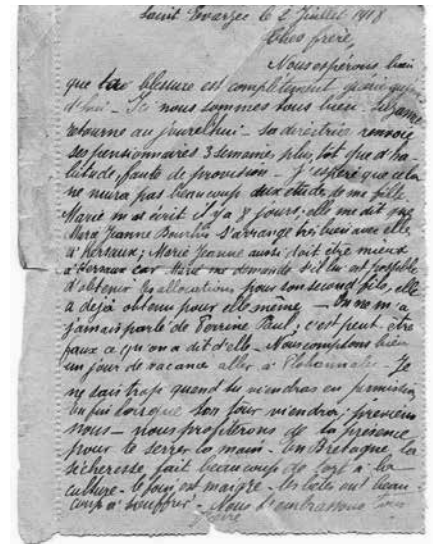 Saint Evarzec le 2 Juillet 1918
Cher frère,
Nous espérons bien
que ta blessure est complètement guérie
Ici nous sommes tous bien. Suzanne
retourne aujourd'hui - sa directrice renvoie
ses pensionnaires 3 semaines plus tôt que d'ha-
bitude, faute de provision - j'espère que cela
ne nuira pas beaucoup aux étude de ma fille
Marie m'a écrit il y a 8 jours; elle me dit que
Marie Jeanne s'arrange très bien avec elle
à Kersaux; Marie Jeanne aussi doit être mieux
à Kersaux car Marie me demande s'il lui est possible
d'obtenir les allocations pour son second fils, elle
a déjà obtenu pour elle même - On ne m'a
jamais parlé de Perrine Paul; c'est peut être
faux ce qu'on a dit d'elle - Nous comptons bien
un jour de vacance aller à - Je
ne sais trop quand tu viendras en permission
enfin lorsque ton tour viendra; préviens
nous - nous profiterons de ta présence
pour te serrer la main - En Bretagne, la
sécheresse fait beaucoup de tort à la
culture - le foin est maigre - les bêtes ont beau-
coup à souffrir - Nous t'embrassons tous